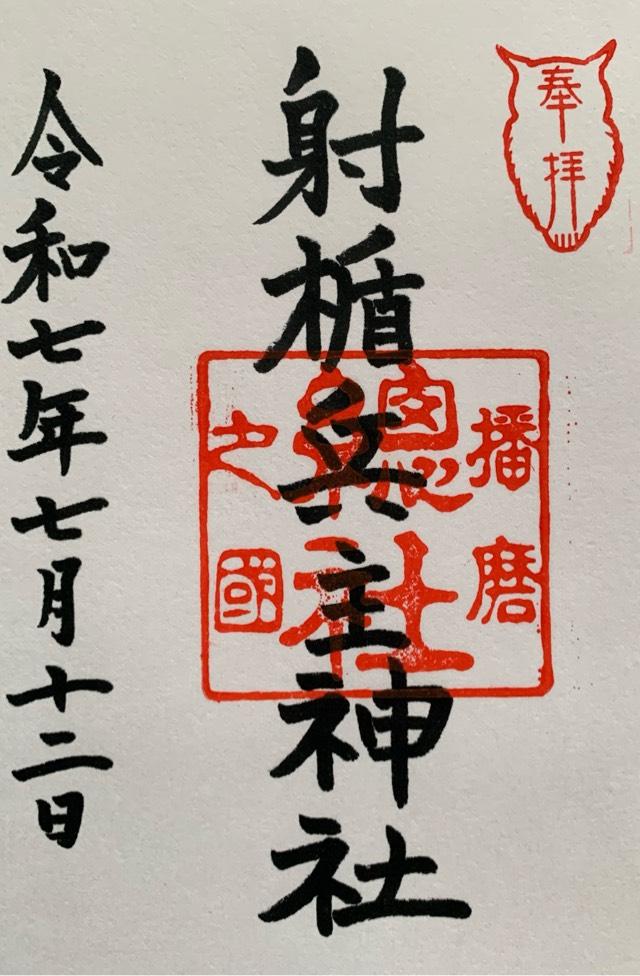 奉拝
射楯兵主神社
播磨
總社
之國
令和七年七月十二日